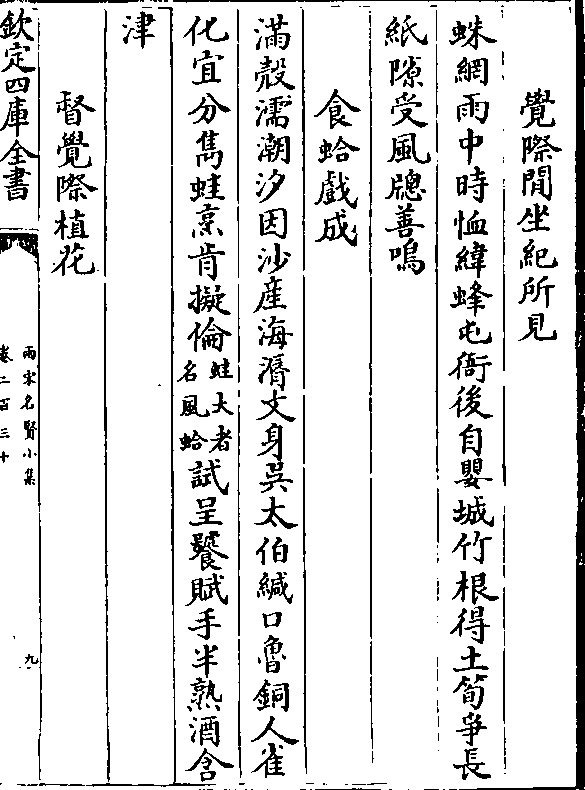 覺際閒坐紀所見
蛛網雨中時恤緯蜂屯衙後自嬰城竹根得土筍爭長
紙隙受風牕善鳴
食蛤戲成
滿殼濡潮汐因沙産海漘文身吳太伯緘口魯銅人雀
化宜分雋蛙烹肯擬倫蛙大者名風蛤試呈饕賦手半熟酒含
津
督覺際植花
欽定四庫全書
兩宋名賢小集
卷二百三十
九